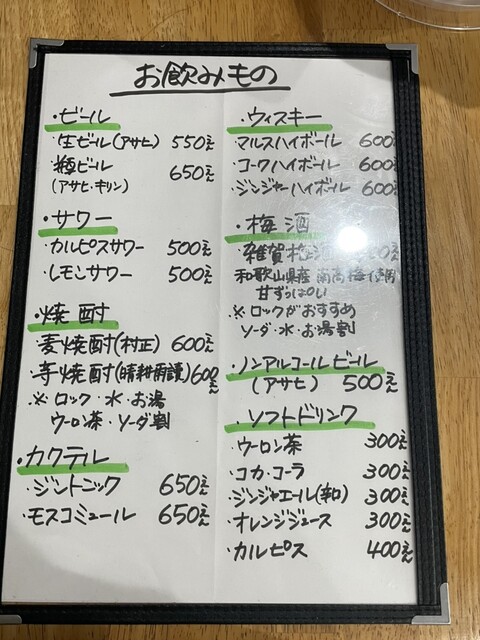 お飲みもの
・ビール
・生ビール(アサヒ) 550え
・瓶ビール 650え
(アサヒ・キリン)
・サワー
・カルピスサワー 500え
・レモンサワー 500え
・焼酎
・麦焼酎(村正) 600え
・芋焼酎(晴耕雨讀) 600え
※ロック・水・お湯
ウーロン茶・ソーダ割
・カクテル
・ジントニック 650え
・モスコミュール 650え
・ウィスキー
マルスハイボール 600え
・コークハイボール 600え
・ジンジャーハイボール 600え
・梅酒
・雑賀梅酒
和歌山県産 南高梅使用
甘ずっぱい
※ロックがおすすめ
ソーダ・水・お湯割
・ノンアルコールビール
(アサヒ) 500え
・ソフトドリンク
・ウーロン茶 300え
・コカ・コーラ 300え
・ジンジャエール(辛口) 300え
・オレンジジュース 300え
・カルピス 400え